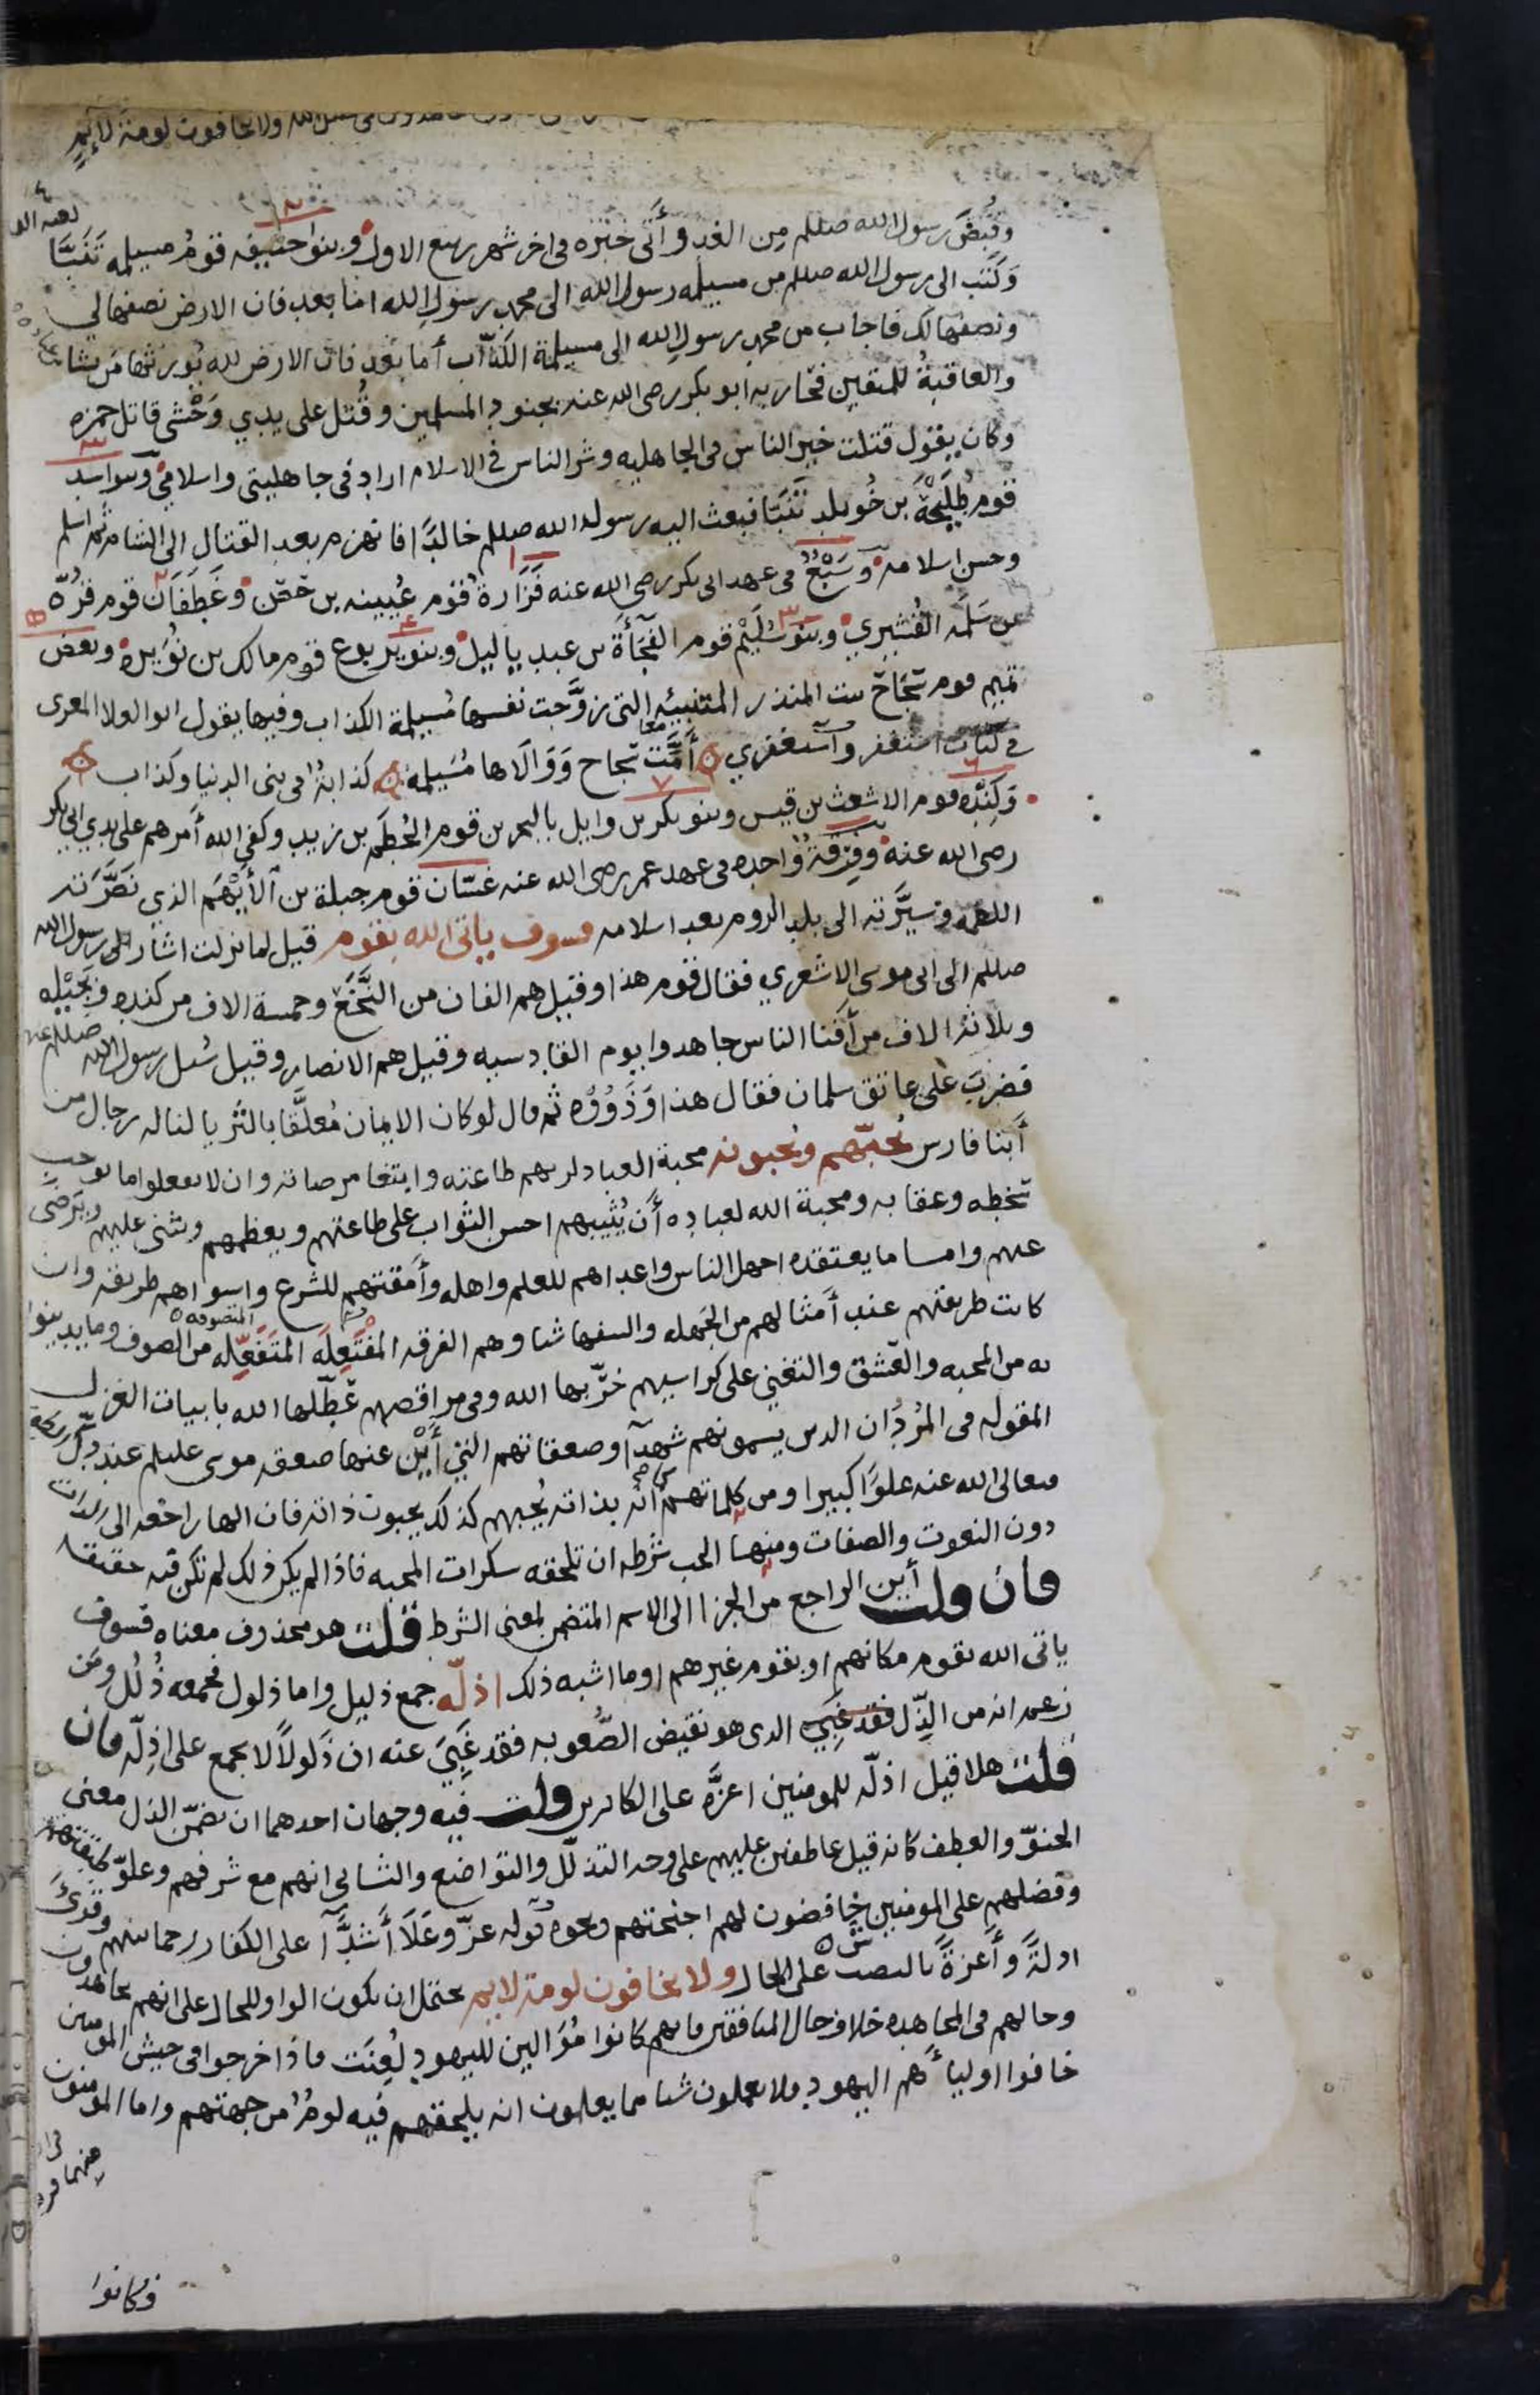 ولا يخافون لومة لائم
وقُبضَ رسول الله صللم من الغد وأتى خبره فى اخر شهر ربيع الاول وبنوا حنيفه قومُ مسيلمه تَنَبّا
وَكَتب الى رسول الله صللم من مسيلمه رسول الله الى محمد رسول الله اما بعد فان الارض نصفها لي
ونصفها لك فاجاب من محمد رسول الله الى مسيلمة الكذّاب أما بَعد فان الارض لله يُورثها من يشا
والعاقبةُ للمتقين فحَاربه ابو بكر رضى الله عنه بجنود المسلمين وقُتل على يدي وَحْشى قاتل حمزه
وكان يقول قتلت خير الناس فى الجاهليه وشر الناس في الاسلام اراد فى جاهليتى واسلامي وبنوا سد
قوم طُلَيحَة بن خُويلد تَنَبّا فبعث اليه رسول الله صللم خالدًا فانهزم بعد القتال الى الشام ثم اسلم
وحسن اسلامه وَسَبْعٌ فى عهد ابى بكر رضى الله عنه فَزَارة قوم عُيينه بن حصن وغَطَفَان قوم قُرّه
بن سَلَمه القُشيري وبنو سُلَيْم قوم الفُجَأة بن عبد ياليل وبنو يربوع قوم مالك بن نُوَيره وبعض
تميم قوم سجَاح بنت المنذر المتنبيّه التى زوَّجت نفسها مُسيلمة الكذاب وفيها يقول ابو العلا المعرى
في كتاب استغفر واستغفري أمَّت سجاح وَوَالاها مُسَيلمة كذابةٌ فى بنى الدنيا وكذاب
وَكِندْه قوم الاشعث بن قيس وبنو بكر بن وايل بالبحرين قوم الحُطَم بن زيد وكفى الله أمرهم على يدي ابى بكر
رضى الله عنه وفِرقةٌ واحده فى عهد عمر رضى الله عنه غسّان قوم جبلة بن الأَيْهَم الذي نَصَّرَته
اللطمه وسيَّرته الى بلد الروم بعد اسلامه فسوف ياتى الله بقوم قيل لما نزلت اشار الى رسول الله
صللم الى ابى موسى الاشعري فقال قوم هذا وقيل هم الفان من النَّخَعْ وخمسة الاف من كنده وبَجيْله
وثلاثة الاف من أفنا الناس جاهدوا يوم القادسيه وقيل هم الانصار وقيل سُئل رسول الله صللم عنهم
فضربَ على عاتق سلمان فقال هذا وَذَوُوُه ثم قال لو كان الايمان مُعلَّقا بالثريا لناله رجال من
أبنا فارس يُحبّهم ويُحبونه محبة العباد لربهم طاعته وابتغا مرضاته وان لا يفعلوا ما يوجب
سَخطه وعقابه ومحبة الله لعباده أن يُثيبهم احسن الثواب على طاعتهم ويعظمهم ويثنى عليهم ويَرضى
عنهم وامـا ما يعتقده اجهل الناس واعداهم للعلم واهله وأمقتهم للشرع واسواهم طريقه وان
كانت طريقتهم عند أمثالهم من الجَهله والسفها شيا وهم الفرقه المفتَعِلَه المتفَعِّله من الصوف وما يدينوا
به من المحبه والعشق والتغني على كراسيهم خرّبها الله وفى مراقصهم عَطّلها الله بابيات الغزل
المقوله فى المُرْدَان الذين يسمونهم شهدآ وصعقاتهم التى أيْن عنها صعقه موسى عليلم عند دَكّ
فتعالى الله عنه علوًا كبيرا ومن كلماتهم انه بذاته يُحبهم كذلك يحبون ذاته فان الها راجعه الى الذات
دون النعوت والصفات ومنها الحب شرطه ان تلحقه سكرات المحبه فاذا لم يكن ذلك لم تكن فيه حقيقه
فان قلت أين الراجع من الجزا الى الاسم المتضمن لمعنى الشرط قلت هو محذوف معناه فسوف
ياتى الله بقوم مكانهم او بقوم غيرهم او ما اشبه ذلك اذلّه جمع ذليل واما ذلول فجمعه ذُلُل ومَن
زعم انه من الذِّل الدى هو نقيض الصُّعوبه فقد غَبِيَ عنه ان ذَلولاً لا يجمع على اذِلّه فان
قلت هلا قيل اذلّه للمومنين اعزَّه على الكافرين قلت فيه وجهان احدهما ان يضمّن الذل معنى
الحنوّ والعطف كانه قيل عاطفين عليهم على وجه التذلّل والتواضع والثانى انهم مع شرفهم وعلوّ طبقتهم
وفضلهم على المومنين خافضون لهم اجنحتهم ونحوه قوله عزّ وعَلَا أشدَّآ على الكفار رحما بينهم وقُرئَ
اذلةً وأعزةً بالنصب على الحال ولا يخافون لومة لايم يحتمل ان يكون الواو للحال على انهم يجاهدون
وحالهم فى المجاهده خلاف حال المنافقين فانهم كانوا مُوَالين لليهود لُعِنَت فاذا خرجوا فى جيش المومنين
خافوا اولياأهم اليهود فلا يعملون شيا مما يعلمون انه يلحقهم فيه لومٌ من جهتهم واما المومنون
فكانوا